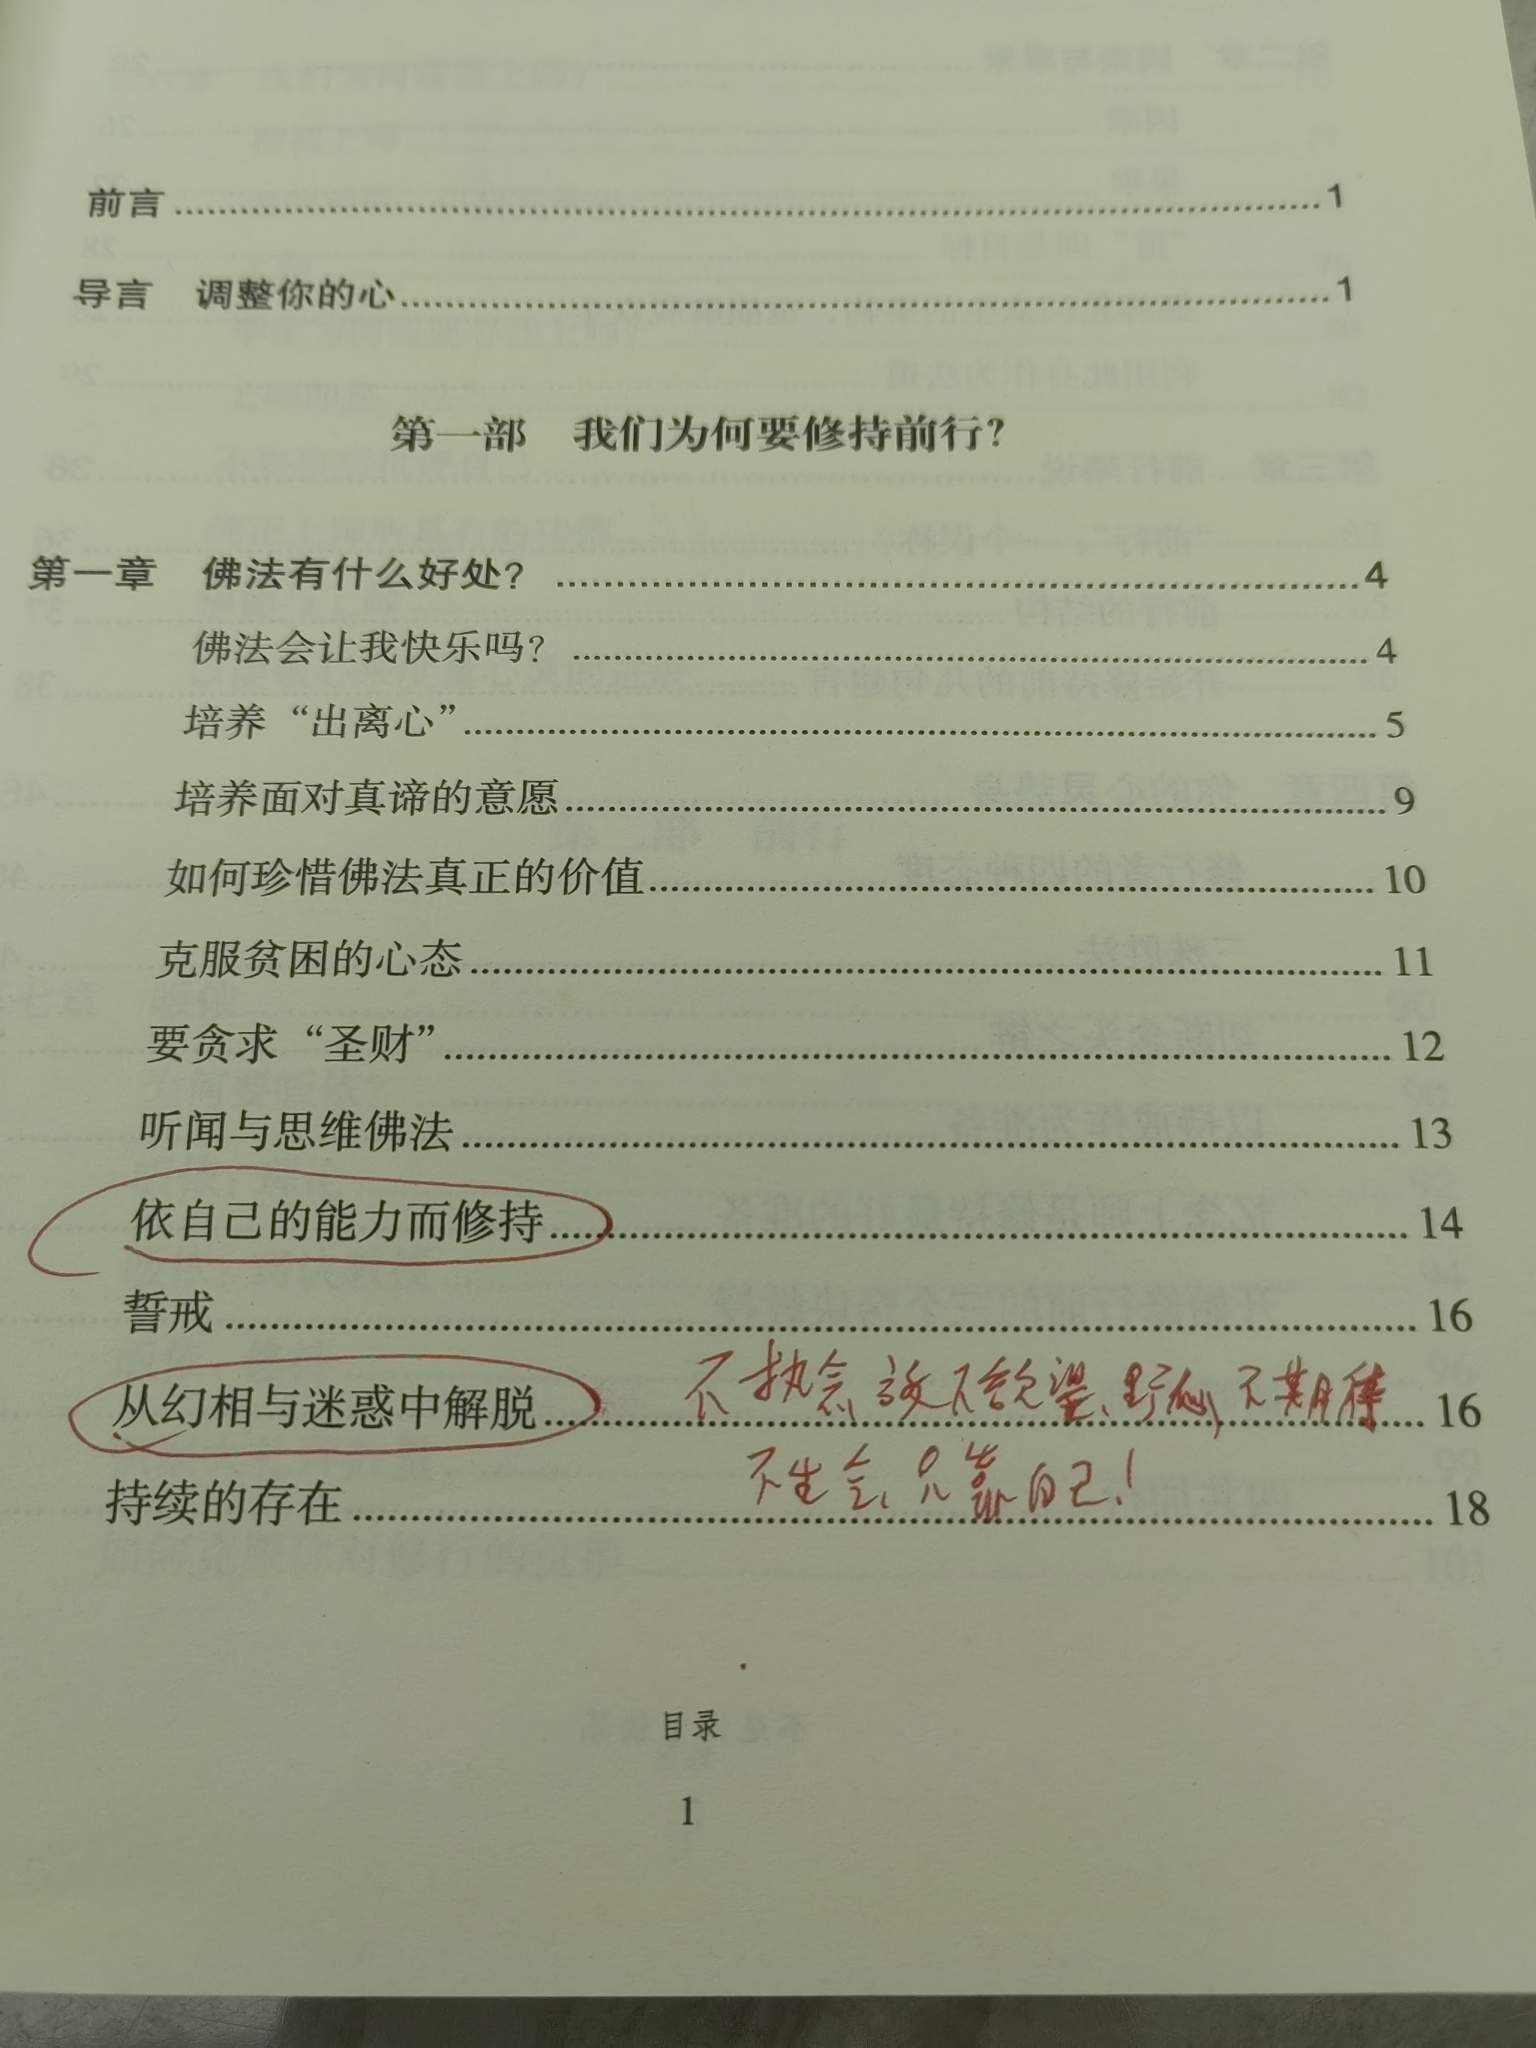 前言……1
导言 调整你的心……1
第一部 我们为何要修持前行?
第一章 佛法有什么好处? ……4
佛法会让我快乐吗? ……4
培养“出离心”……5
培养面对真谛的意愿……9
如何珍惜佛法真正的价值……10
克服贫困的心态……11
要贪求“圣财”……12
听闻与思维佛法……13
依自己的能力而修持……14
誓戒……16
不执念、放下欲望、野心,不期待
从幻相与迷惑中解脱……16
不生会、只靠自己!
持续的存在……18
目录
1